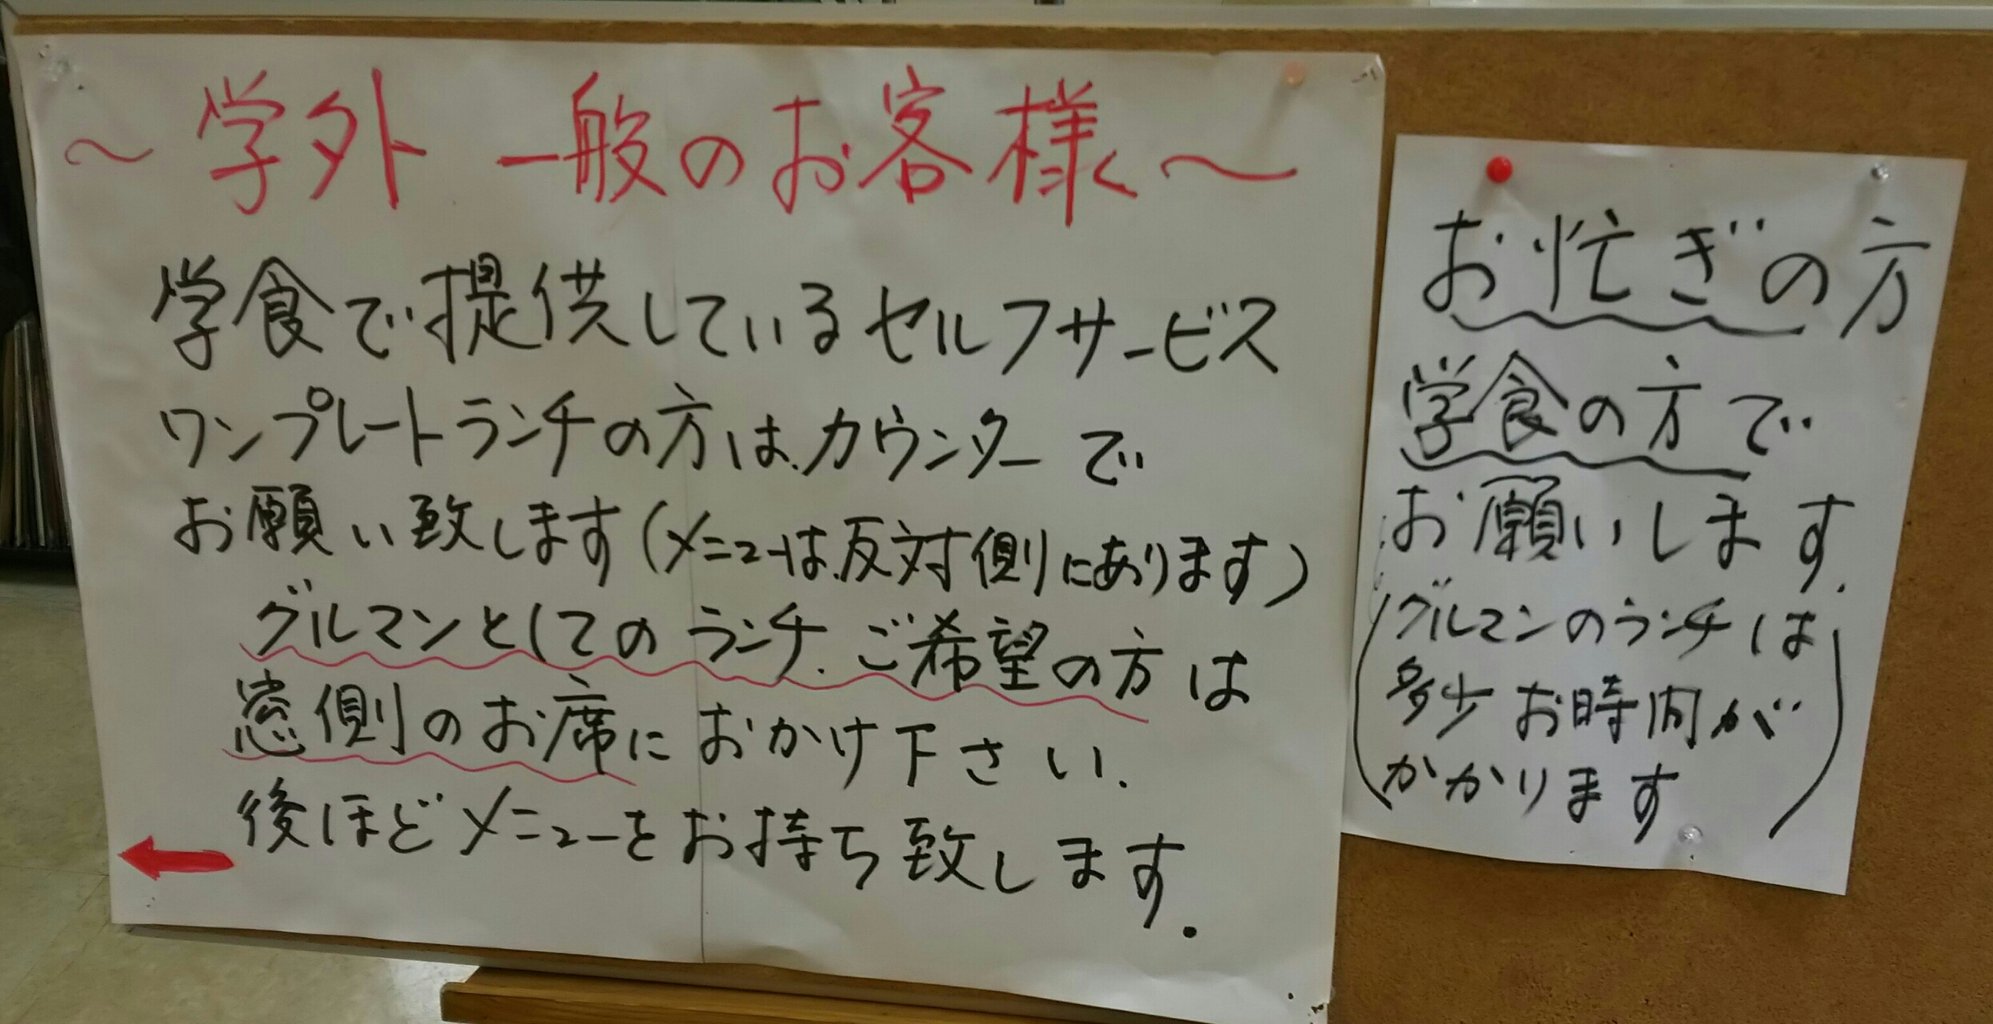 ～学外 一般のお客様～
学食で提供しているセルフサービス
ワンプレートランチの方は、カウンターで
お願い致します(メニューは、反対側にあります)
グルマンとしてのランチ、ご希望の方は
窓側のお席におかけ下さい.
後ほどメニューをお持ち致します.
お忙ぎの方
学食の方で
お願いします.
(グルマンのランチは
多少お時間が
かかります)